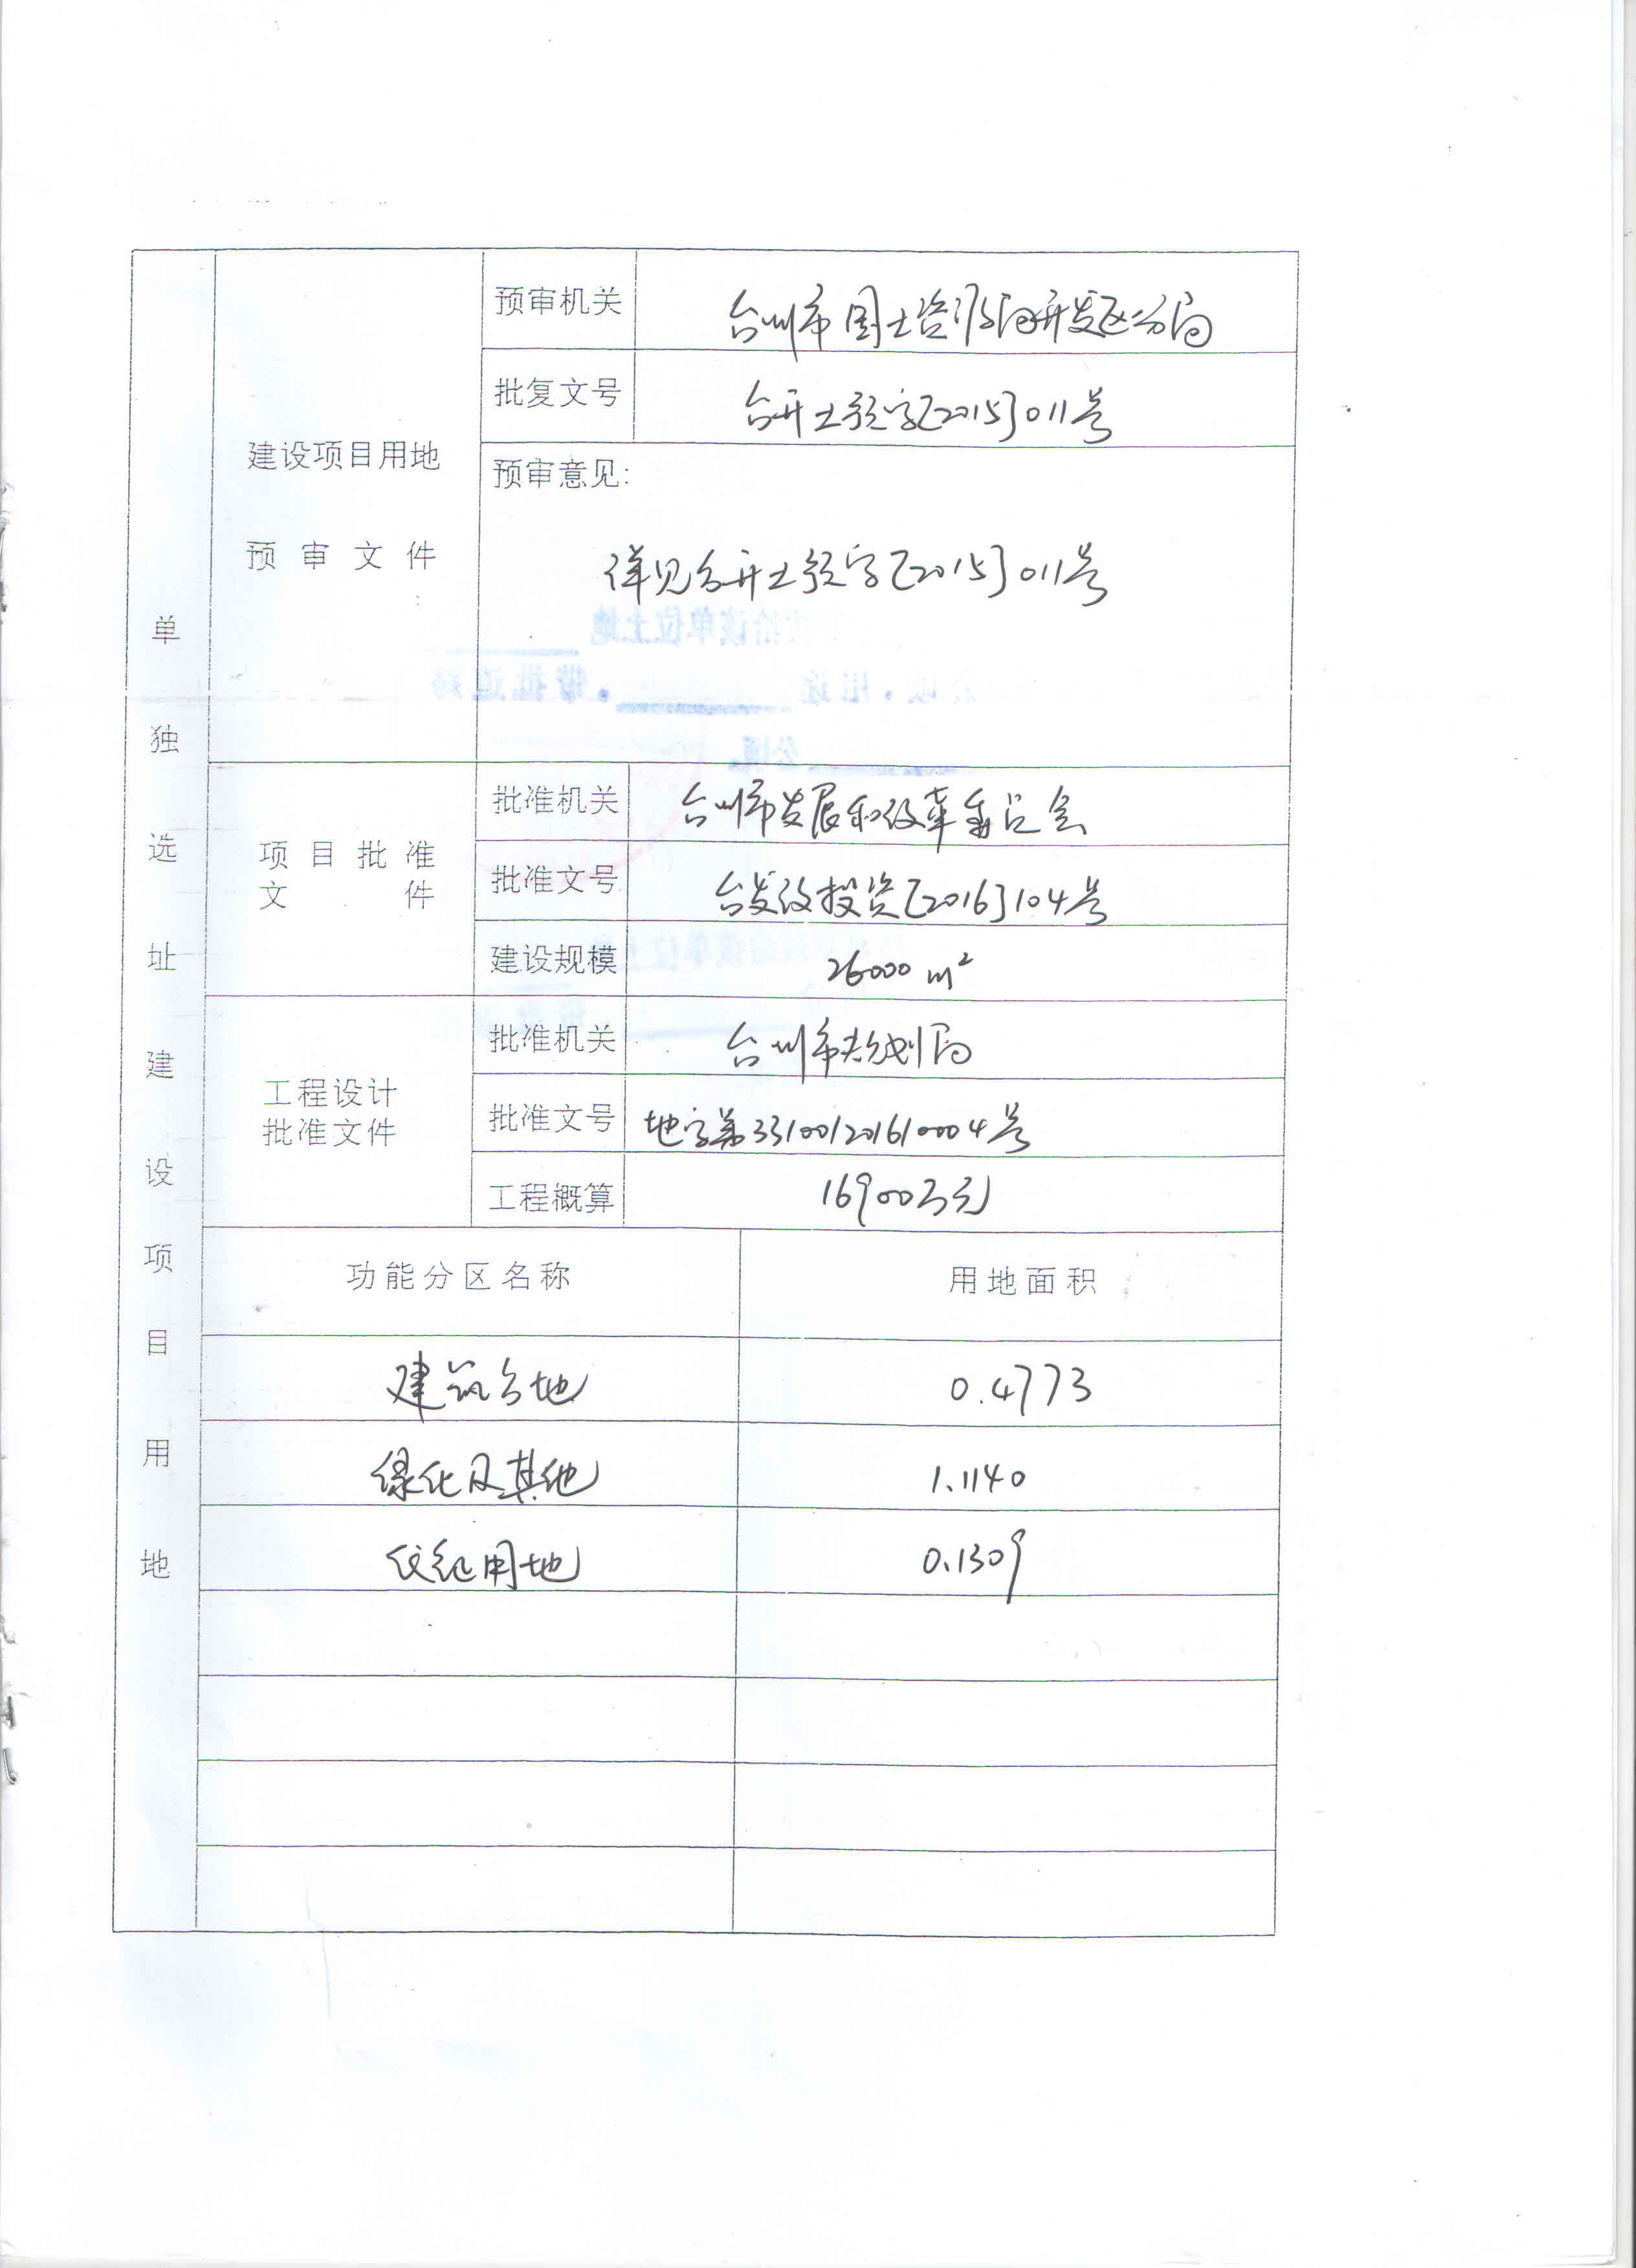 单独选址建设项目用地
建设项目用地
预审文件
预审机关
台州市国土资源局开发区分局
批复文号
台开土预字[2015]011号
预审意见:
详见台开土预字[2015]011号
项目批准
文件
批准机关
台州市发展和改革委员会
批准文号
台发改投资[2016]104号
建设规模
26000 m²
工程设计
批准文件
批准机关
台州市规划局
批准文号
地字第331001201610004号
工程概算
16900万元
功能分区名称
用地面积
建筑占地
0.4773
绿化及其他
1.1140
代征用地
0.1309